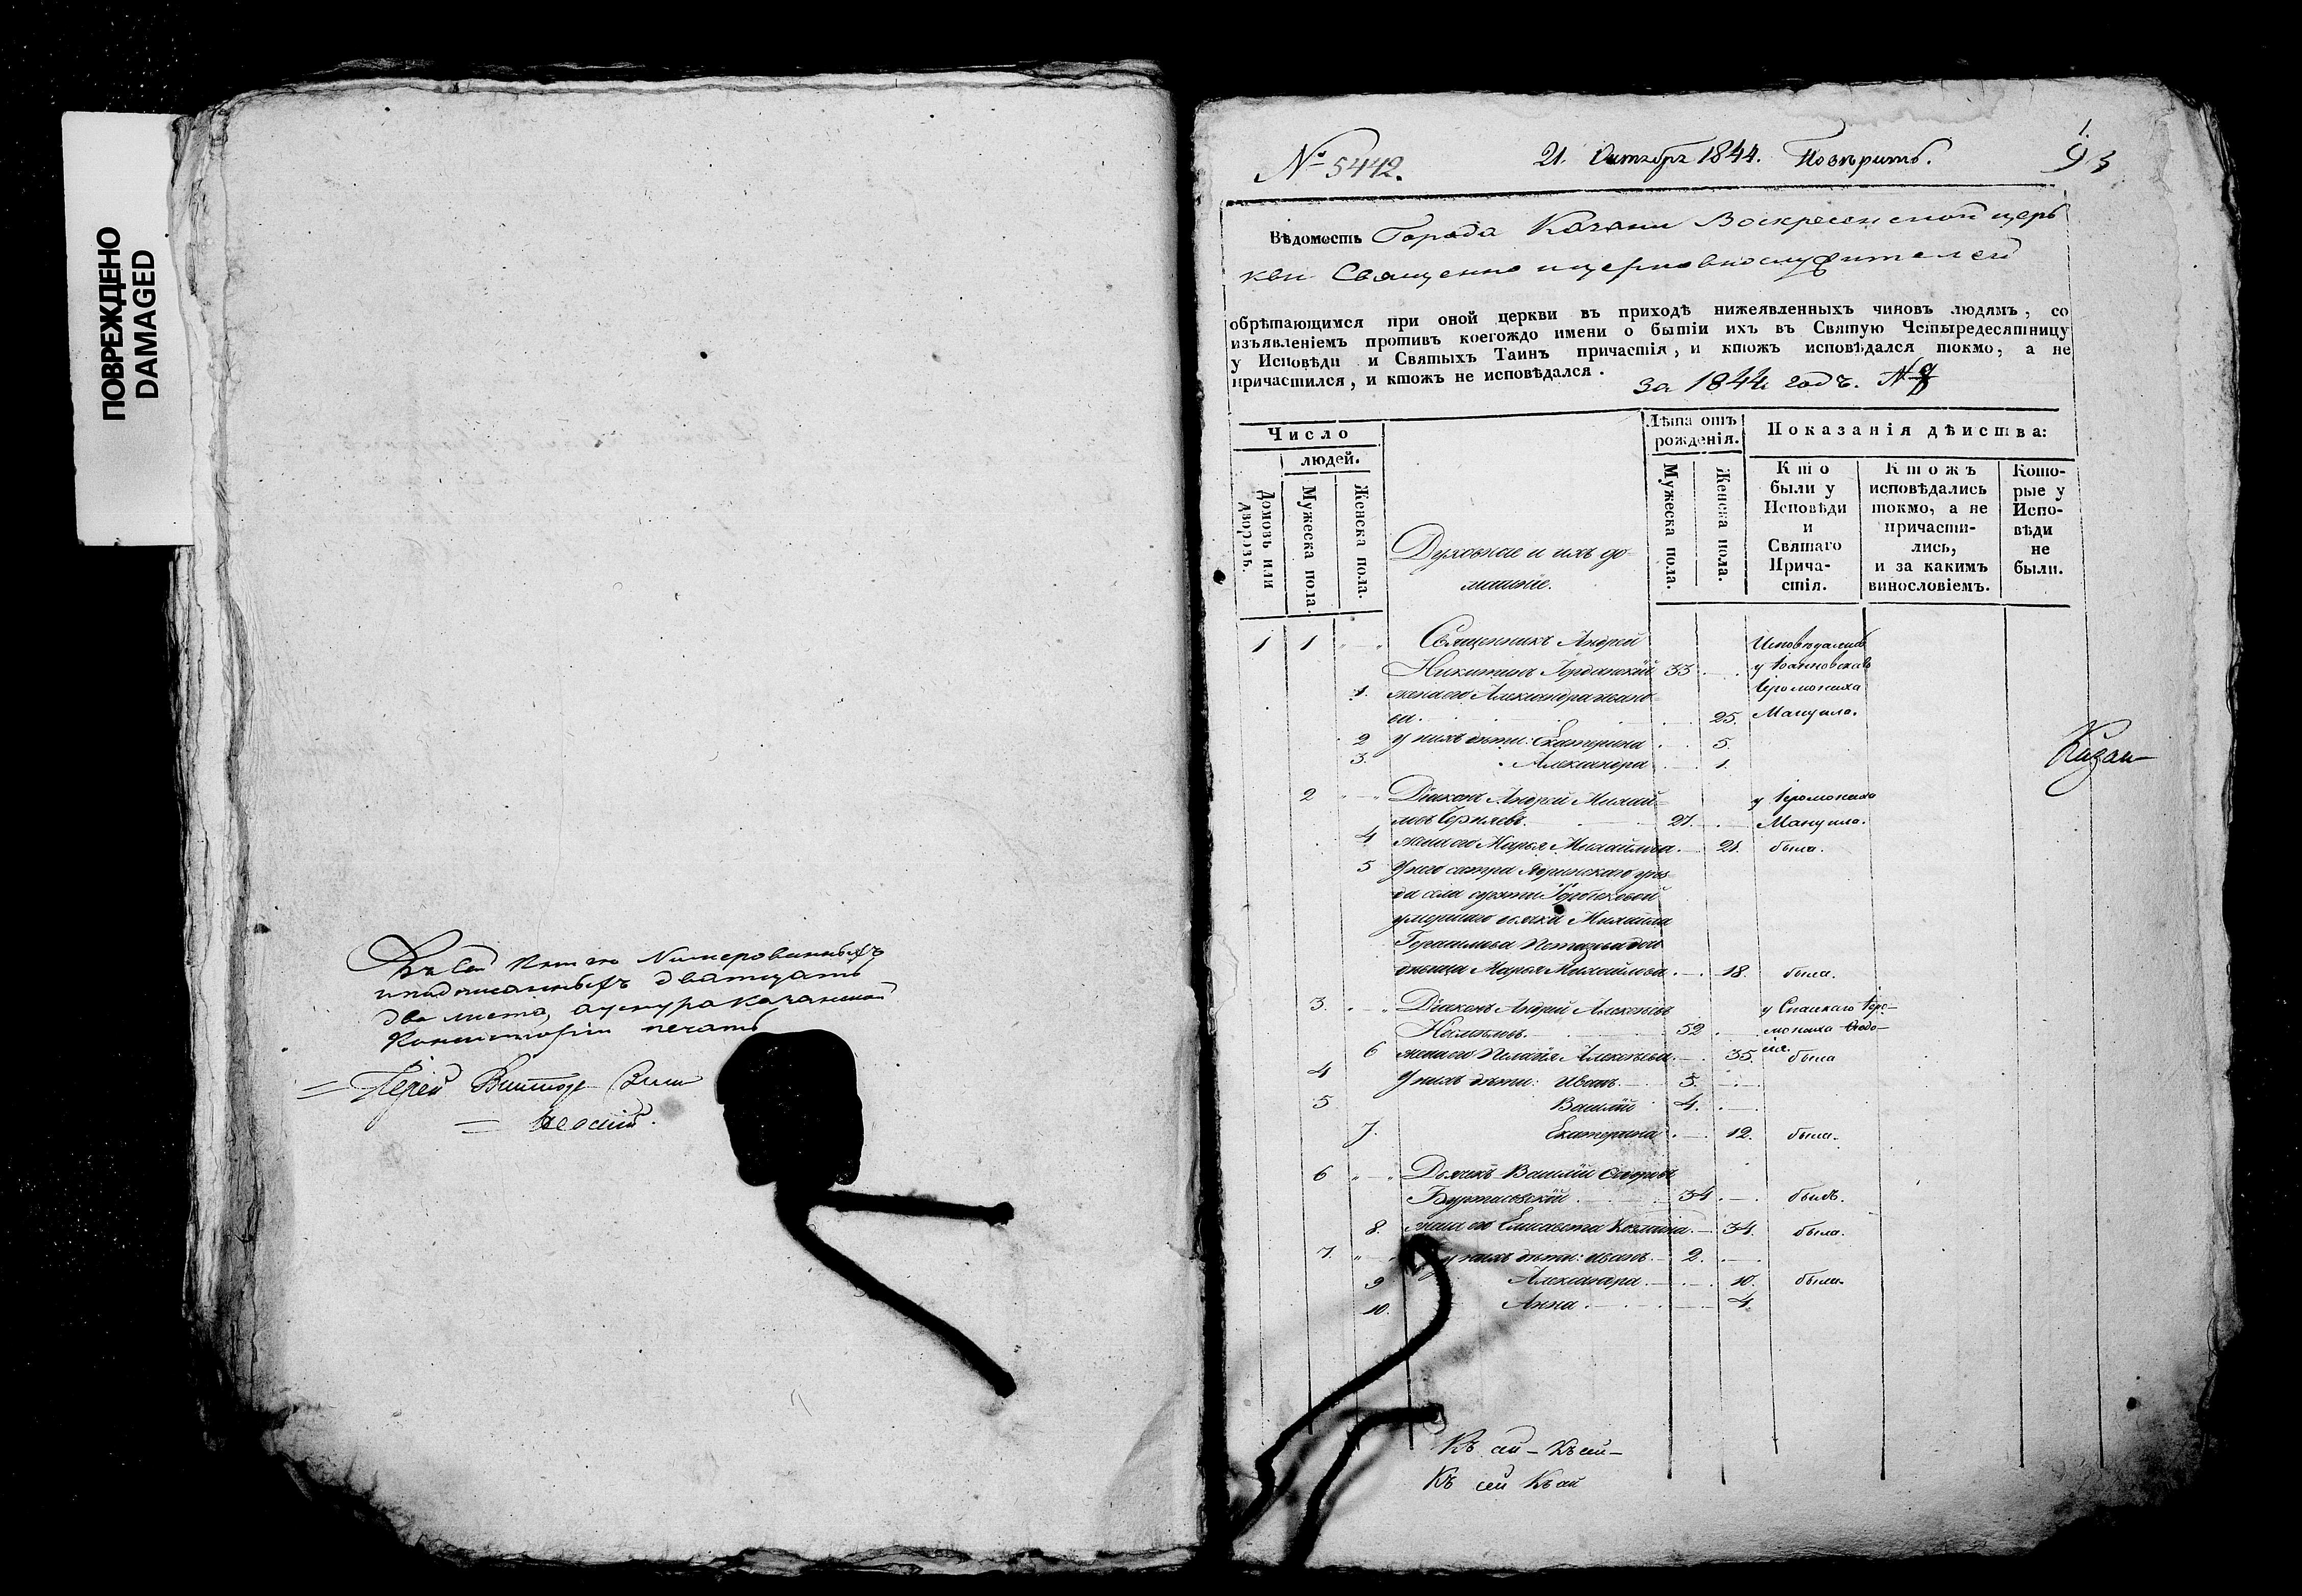 ПОВРЕЖДЕНО
DAMAGED
Въ сей книгѣ Нумерованныхъ
и подписанныхъ дватцать
два листа, а у шнура Казанской
Консисторіи печать
Іерей Викторъ
№ 5442.
21. Октября 1844. Повѣрить.
1.
93
Вѣдомость Города Казани Воскресенской цер
кви Священно и церковнослужителей
обрѣтающимся при оной церкви въ приходѣ нижеявленныхъ чиновъ людямъ, со
изъявленіемъ противъ коегождо имени о бытіи ихъ въ Святую Четыредесятницу
у Исповѣди и Святыхъ Таинъ причастія, и ктожъ исповѣдался токмо, а не
причастился, и ктожъ не исповѣдался.
за 1844 годъ.
Число
людей.
Домовъ или дворовъ.
Мужеска пола.
Женска пола.
Духовные и ихъ до-
машніе.
Лѣта отъ
рожденія.
Мужеска пола.
Женска пола.
Показанія дѣиства:
Кто
были у
Исповѣди
и
Святаго
Прича-
стія.
Ктожъ
исповѣдались
токмо, а не
причасти-
лись,
и за какимъ
винословіемъ.
Кото-
рые у
Испо-
вѣди
не
были.
1 1 Священникъ Андрей Исповѣдались
Никитинъ 33 у
1. жена его Александра Іеромонаха
25. Мануила.
2 у нихъ дѣти: Екатерина 5.
3. Александра 1.
2 Діаконъ Андрей Михай- у Іеромонаха
ловъ 27. Мануила.
4 жена его Марья Михайлова 21. была.
5 У него сестра
умершаго дьячка Михаила
Марья Михайлова 18. была.
3. Діаконъ Андрей Алексѣевъ у Спаскаго Іеро-
52 монаха
6 жена его Пелагія Алексѣева 35. была
4 У нихъ дѣти: Иванъ 5.
5 Василій 4.
7. Екатерина 12. была.
6 Дьячекъ Василій
34 былъ.
8. жена его Елисавета Козмина 34. была.
7. у нихъ дѣти: Иванъ 2.
9 Александра 10. была.
10. Анна 4.
Казан
Къ сей - Къ сей -
Къ сей Къ сей